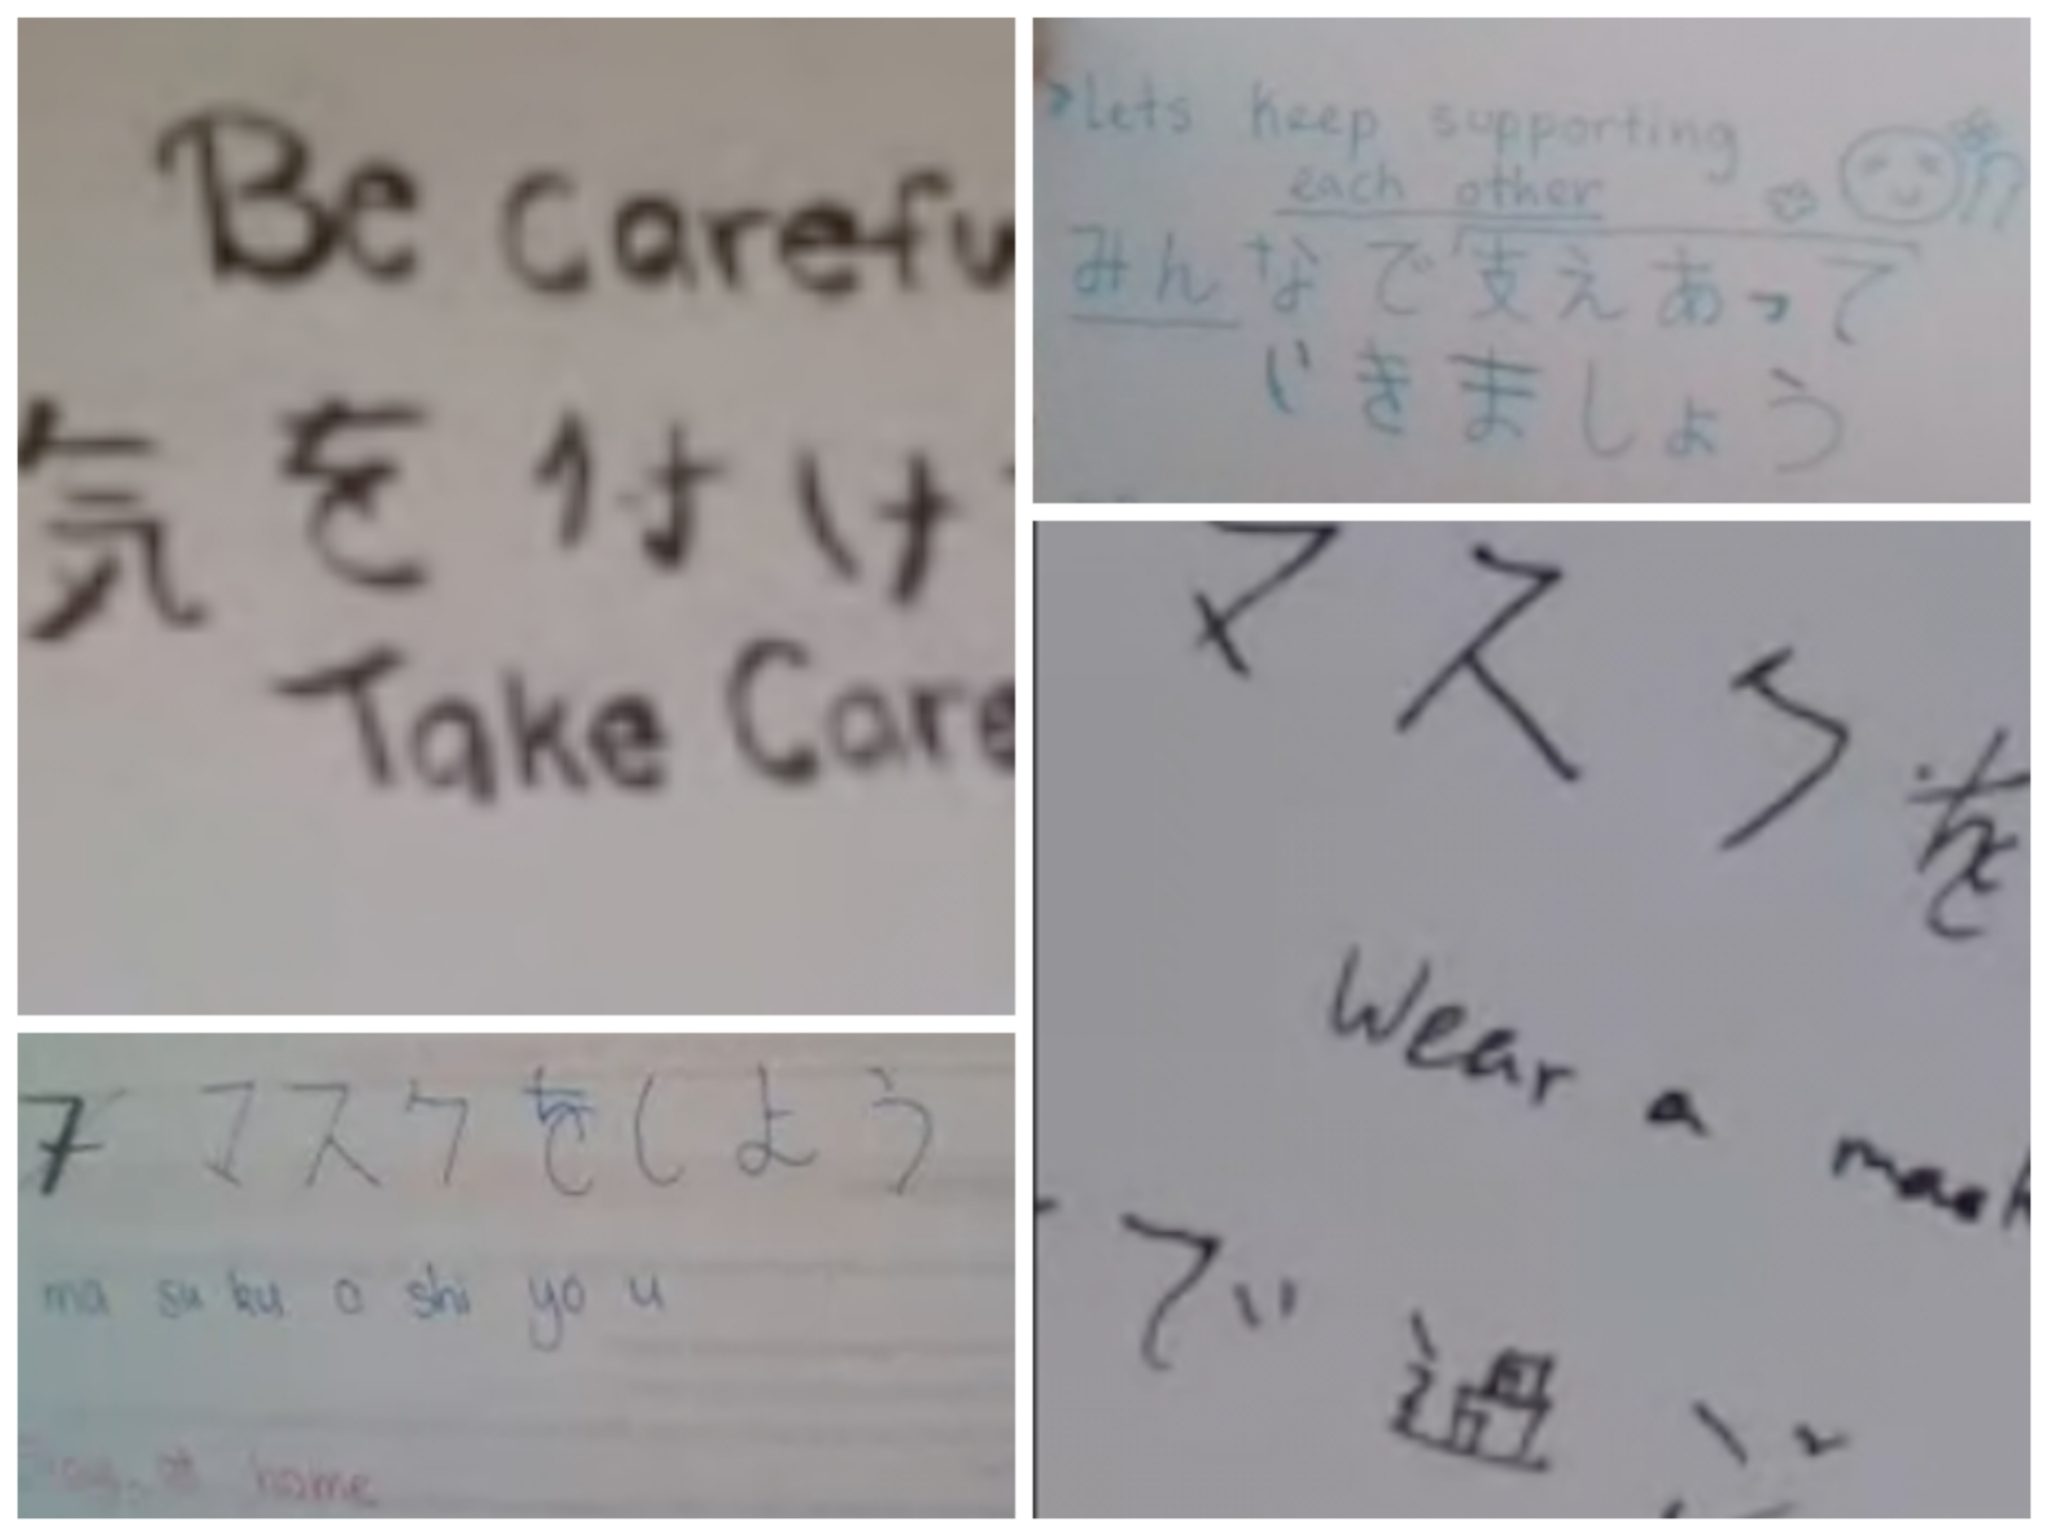 Be Carefu
気を付け
Take Care
Lets keep supporting
each other
みんなで支えあって
いきましょう
マスクを
Wear a mask
で過ご
マスクをしよう
ma su ku o shi yo u
Stay at home